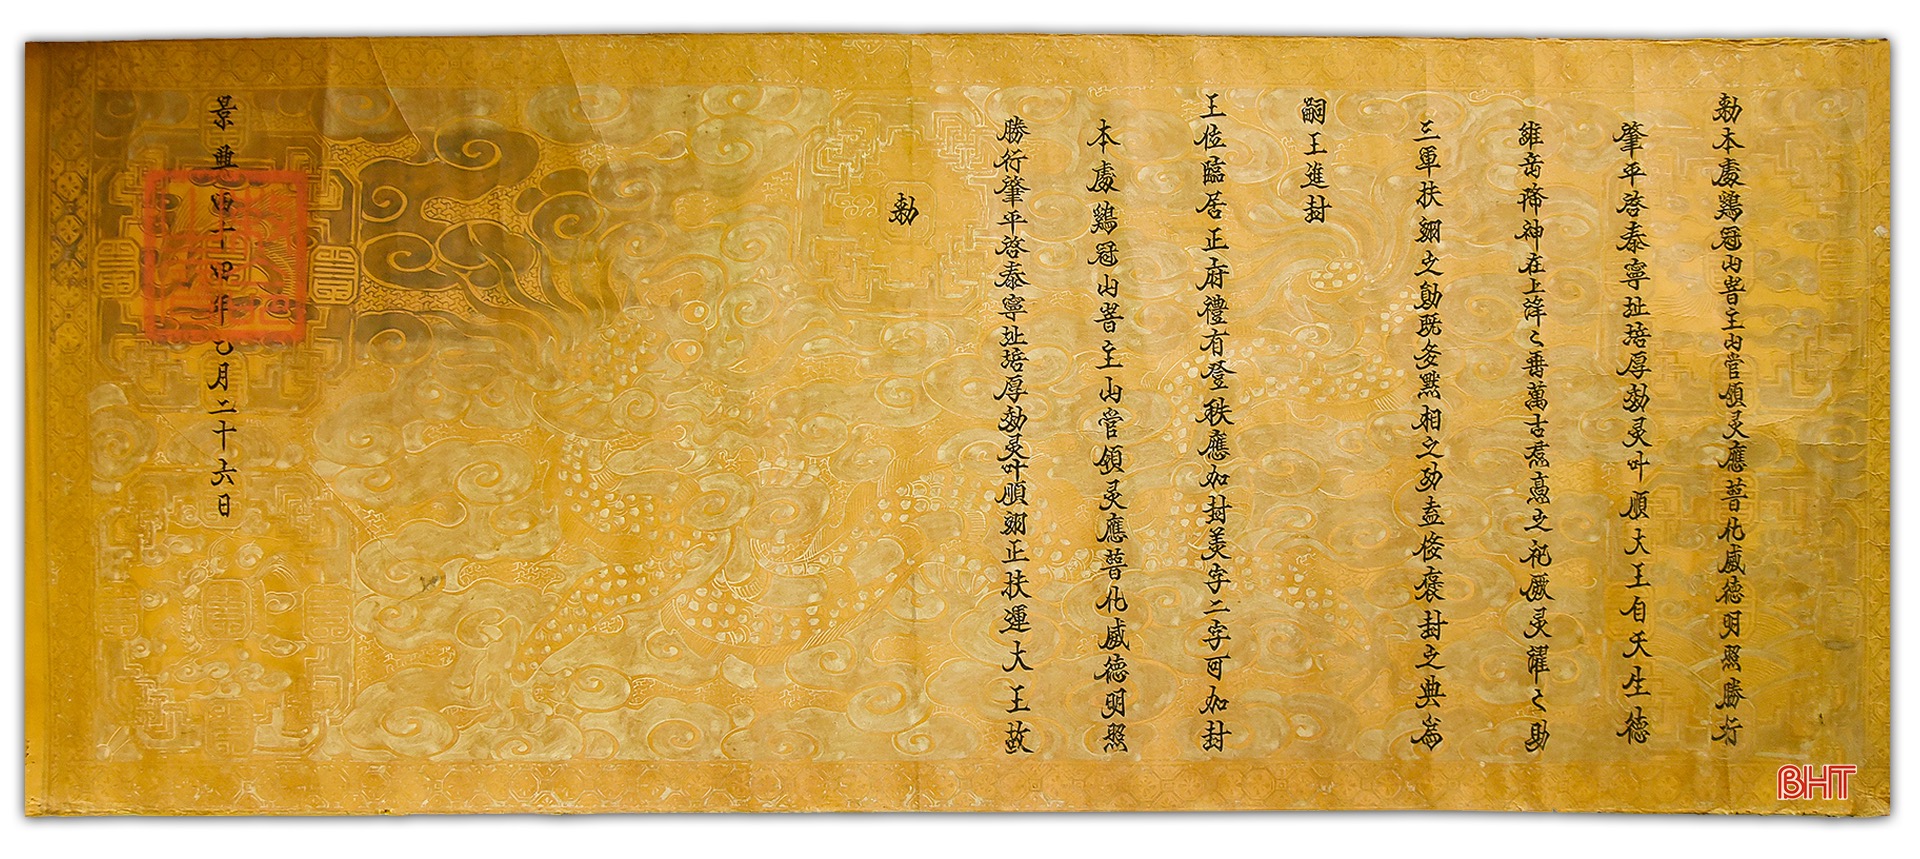 勅本處鷄冠山峕主山當領灵應普化威德明照勝行
肇平啓泰寧址培厚効灵叶順大王自天生德
維嶽降神在上洋〻垂萬古焄蒿之祀厥灵濯〻助
三軍扶翊之勛既多黙相之功盍俊褒封之典爲
嗣王進封
王位臨居正府禮有登秩應加封美字二字可加封
本處鷄冠山峕主山當領灵應普化威德明照
勝行肇平啓泰寧址培厚効灵叶順翊正扶運大王故
勅
景興四十四年七月二十六日
BHT